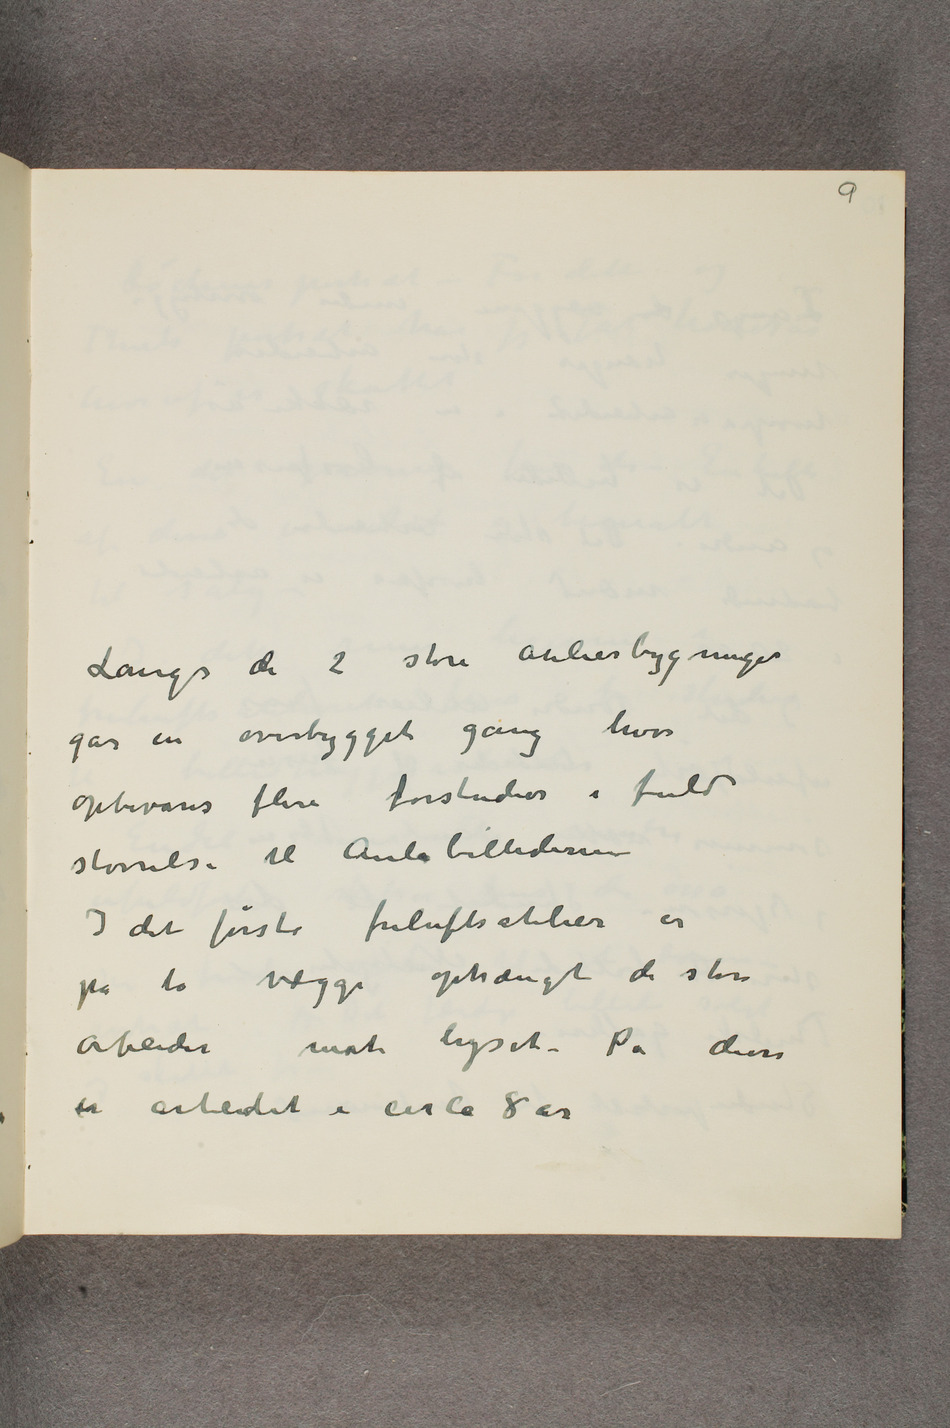 9
Langs de 2 store atelierbygninger
går en overbygget gang hvor
opbevares flere forstudier i fuld
størrelse til Aulabillederne
I det første friluftsatelier er
på to vægge ophængt de store
arbeider mot lyset. På disse
er arbeidet i cirka 8 år